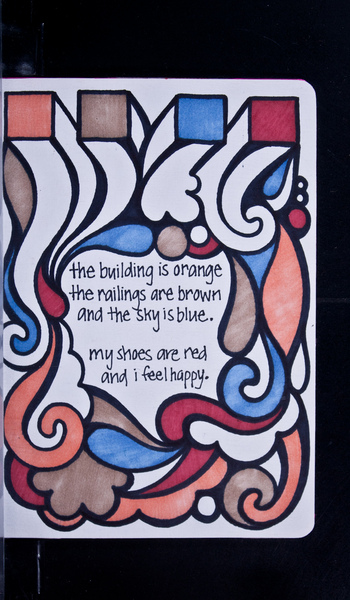 the building is orange
the railings are brown
and the sky is blue.
my shoes are red
and i feel happy.